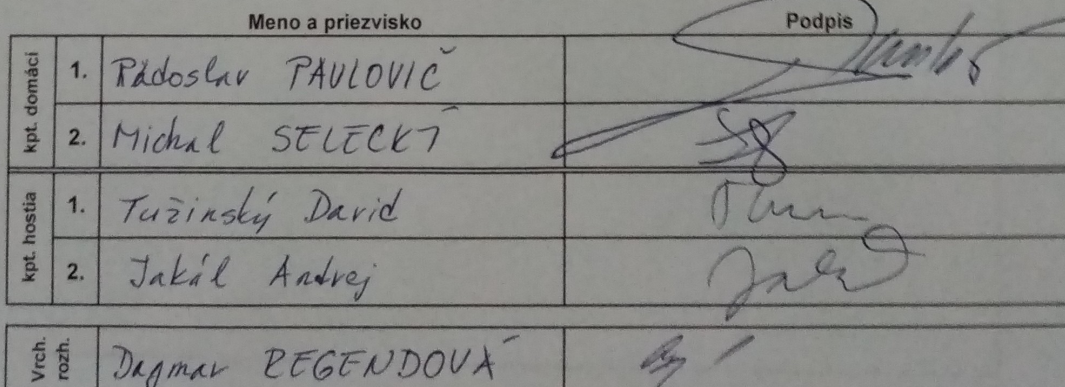 Meno a priezvisko Podpis
kpt. domáci
1. Radoslav PAVLOVIČ
2. Michal SELECKÝ
kpt. hostia
1. Tužinský David
2. Jakál Andrej
Vrch. rozh.
Dagmar REGENDOVÁ